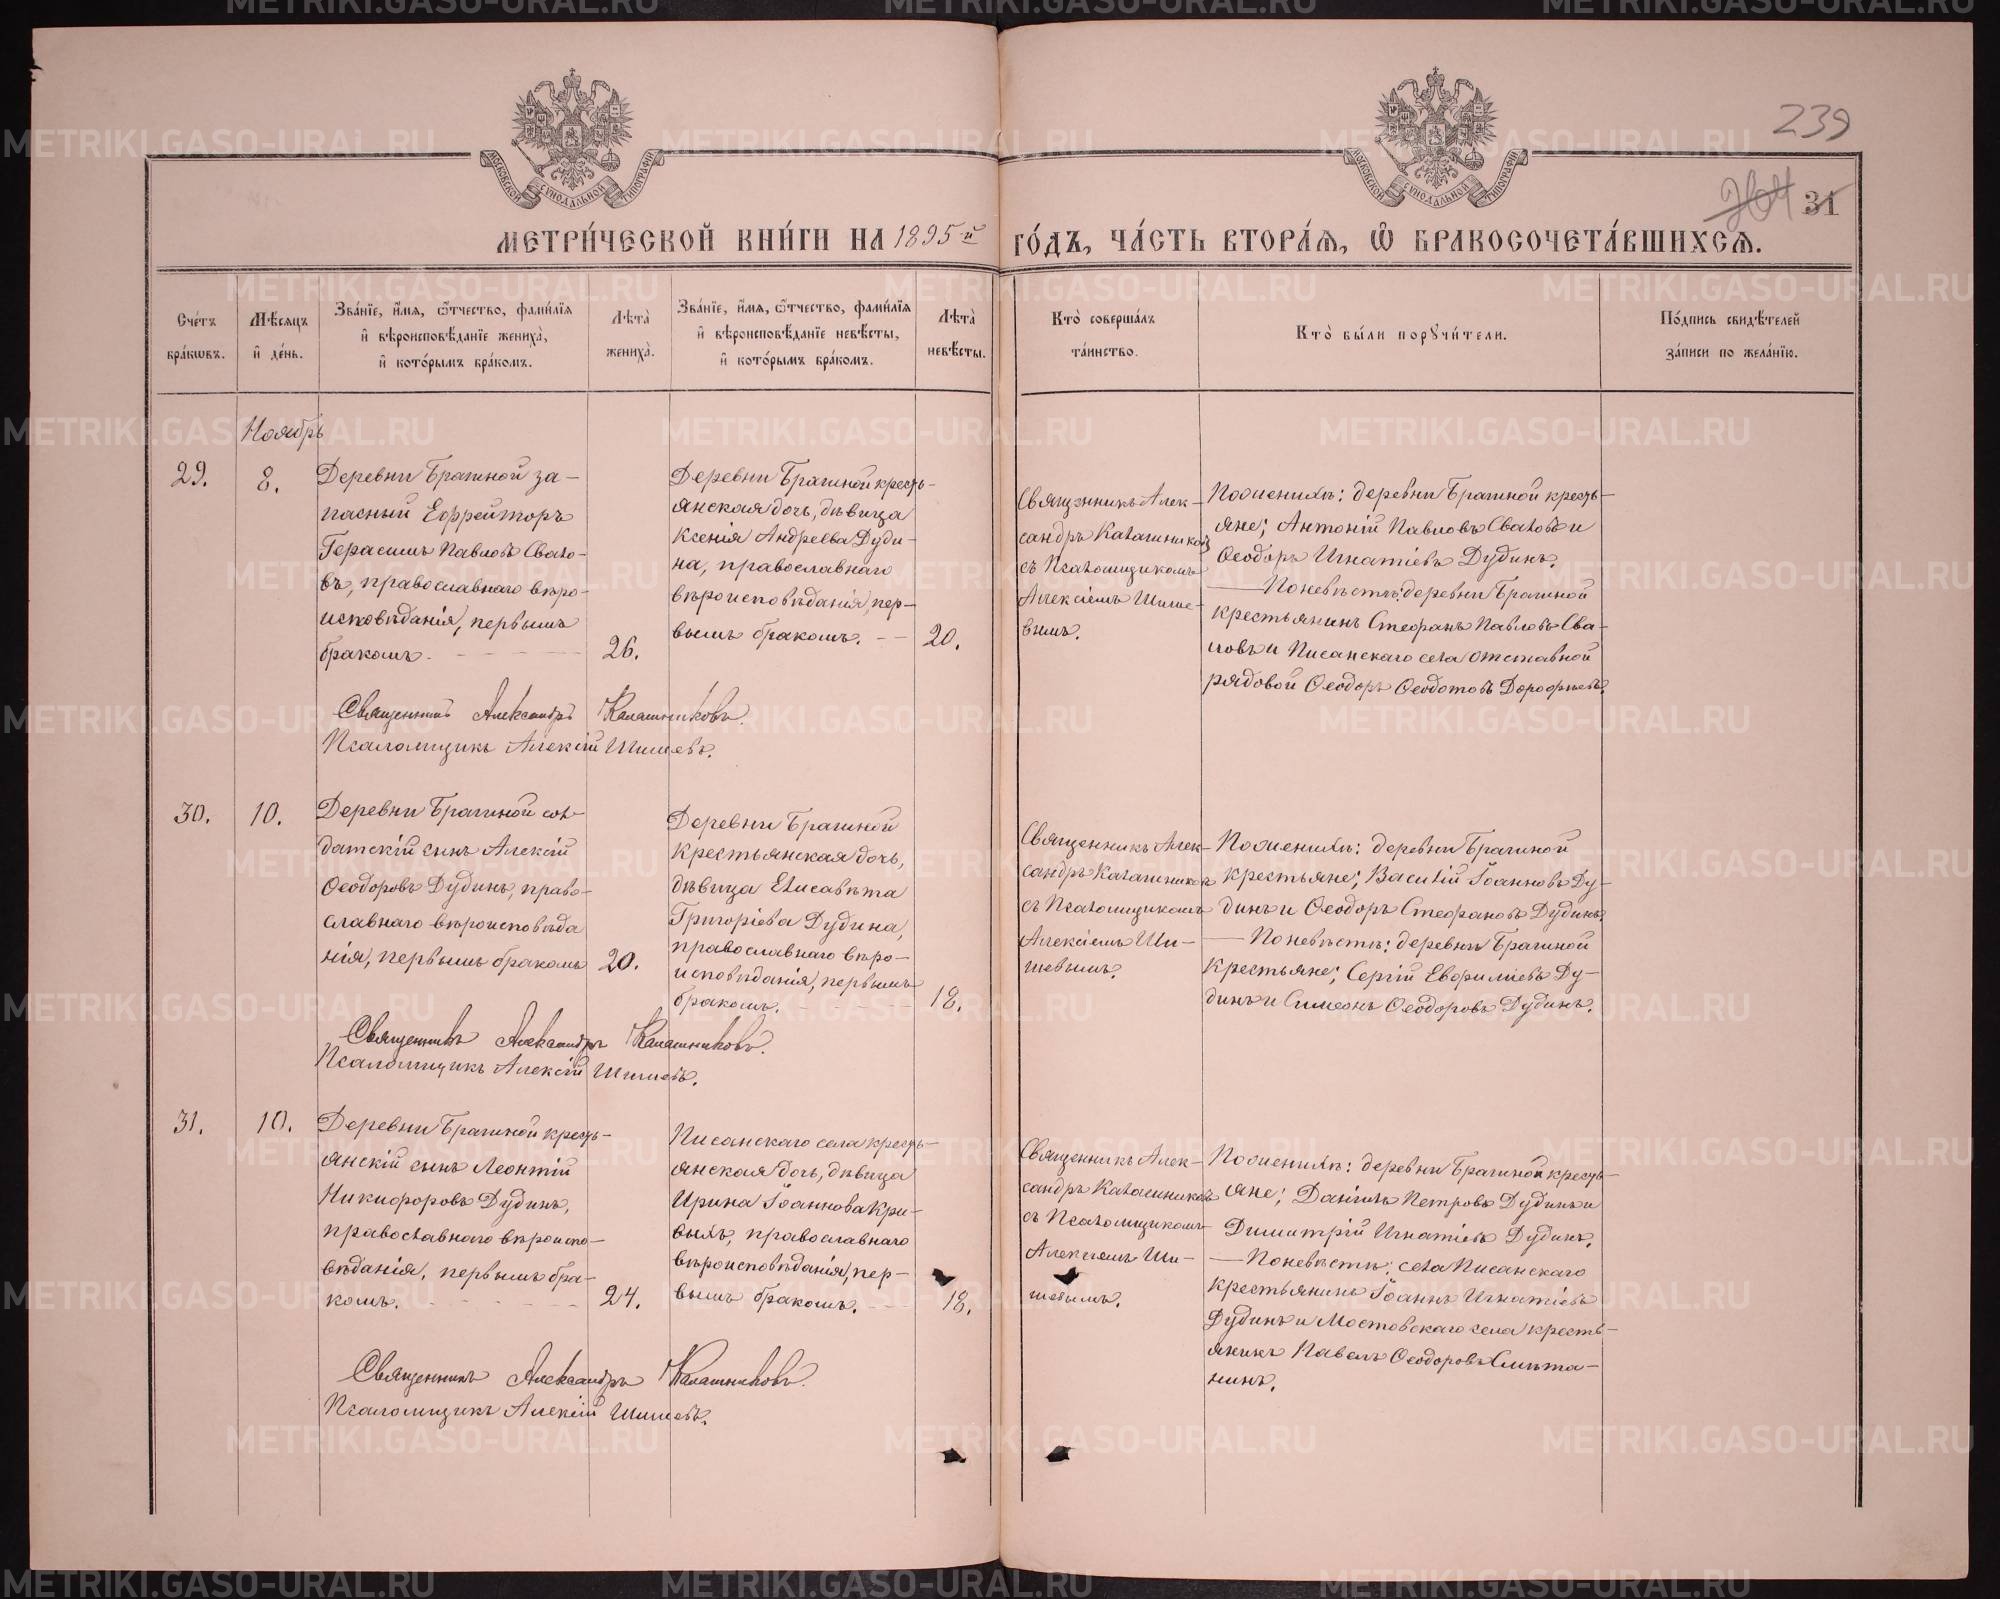 239
264 31
МОСКОВСКОЙ СУНОДАЛЬНОЙ ТИПОГРАФІИ
МОСКОВСКОЙ СУНОДАЛЬНОЙ ТИПОГРАФІИ
МЕТРИ́ЧЕСКОЙ КНИ́ГИ НА 1895-й ГО́ДЪ, ЧА́СТЬ ВТОРА́Я, Ѽ БРАКОСОЧЕТА́ВШИХСЯ.
Сче́тъ бра́кωвъ.
Мѣ́сяцъ и҆ де́нь.
Зва́нїе, и҆́мя, ѻ҆́тчество, фами́лїя и҆ вѣроисповѣ́данїе жениха̀, и҆ кото́рымъ бра́комъ.
Лѣ́та жениха̀.
Зва́нїе, и҆́мя, ѻ҆́тчество, фами́лїя и҆ вѣроисповѣ́данїе невѣ́сты, и҆ кото́рымъ бра́комъ.
Лѣ́та невѣ́сты.
Кто̀ соверша́лъ та́инство.
Кто̀ бы́ли порꙋчи́тели.
По́дпись свидѣ́телей за́писи по жела́нїю.
Ноябрь
29.
8.
Деревни Брагиной за-
пасный Ефрейторъ
Герасимъ Павловъ Свало-
въ, православнаго вѣро-
исповѣданія, первымъ
бракомъ.
26.
Деревни Брагиной кресть-
янская дочь, дѣвица
Ксенія Андреева Дуди-
на, православнаго
вѣроисповѣданія, пер-
вымъ бракомъ.
20.
Священникъ Алек-
сандръ Калашниковъ
съ Псаломщикомъ
Алексіемъ Шише-
вымъ.
По женихѣ: деревни Брагиной кресть-
яне; Антоній Павловъ Сваловъ и
Ѳеодоръ Игнатіевъ Дудинъ.
— По невѣстѣ: деревни Брагиной
крестьянинъ Стефанъ Павловъ Сва-
ловъ и Писанскаго села отставной
рядовой Ѳеодоръ Ѳеодотовъ Дорофѣевъ.
Священникъ Александръ Калашниковъ.
Псаломщикъ Алексій Шишевъ.
30.
10.
Деревни Брагиной сол-
датскій сынъ Алексій
Ѳеодоровъ Дудинъ, право-
славнаго вѣроисповѣда
нія, первымъ бракомъ
20.
Деревни Брагиной
крестьянская дочь,
дѣвица Елисавета
Григоріева Дудина,
православнаго вѣро-
исповѣданія, первымъ
бракомъ.
18.
Священникъ Алек-
сандръ Калашниковъ
съ Псаломщикомъ
Алексіемъ Ши-
шевымъ.
По женихѣ: деревни Брагиной
крестьяне; Василій Іоанновъ Ду-
динъ и Ѳеодоръ Стефановъ Дудинъ.
— По невѣстѣ: деревни Брагиной
крестьяне; Сергій Евфиміевъ Ду-
динъ и Симеонъ Ѳеодоровъ Дудинъ.
Священникъ Александръ Калашниковъ.
Псаломщикъ Алексій Шишевъ.
31.
10.
Деревни Брагиной кресть-
янскій сынъ Леонтій
Никифоровъ Дудинъ,
православнаго вѣроиспо-
вѣданія, первымъ бра-
комъ.
24.
Писанскаго села кресть-
янская дочь, дѣвица
Ирина Іоаннова Кри-
выхъ, православнаго
вѣроисповѣданія, пер-
вымъ бракомъ.
18.
Священникъ Алек-
сандръ Калашниковъ
съ Псаломщикомъ
Алексіемъ Ши-
шевымъ.
По женихѣ: деревни Брагиной кресть-
яне; Даніилъ Петровъ Дудинъ и
Димитрій Игнатіевъ Дудинъ.
— По невѣстѣ: села Писанскаго
крестьянинъ Іоаннъ Игнатіевъ
Дудинъ и Мостовскаго села кресть-
янинъ Павелъ Ѳеодоровъ Смѣта-
нинъ.
Священникъ Александръ Калашниковъ.
Псаломщикъ Алексій Шишевъ.
METRIKI.GASO-URAL.RU